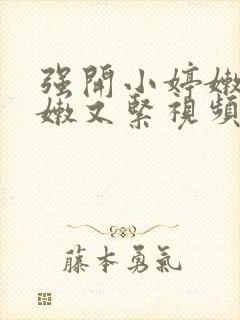 强開小婷嫩
嫩又緊視頻
藤本勇氣